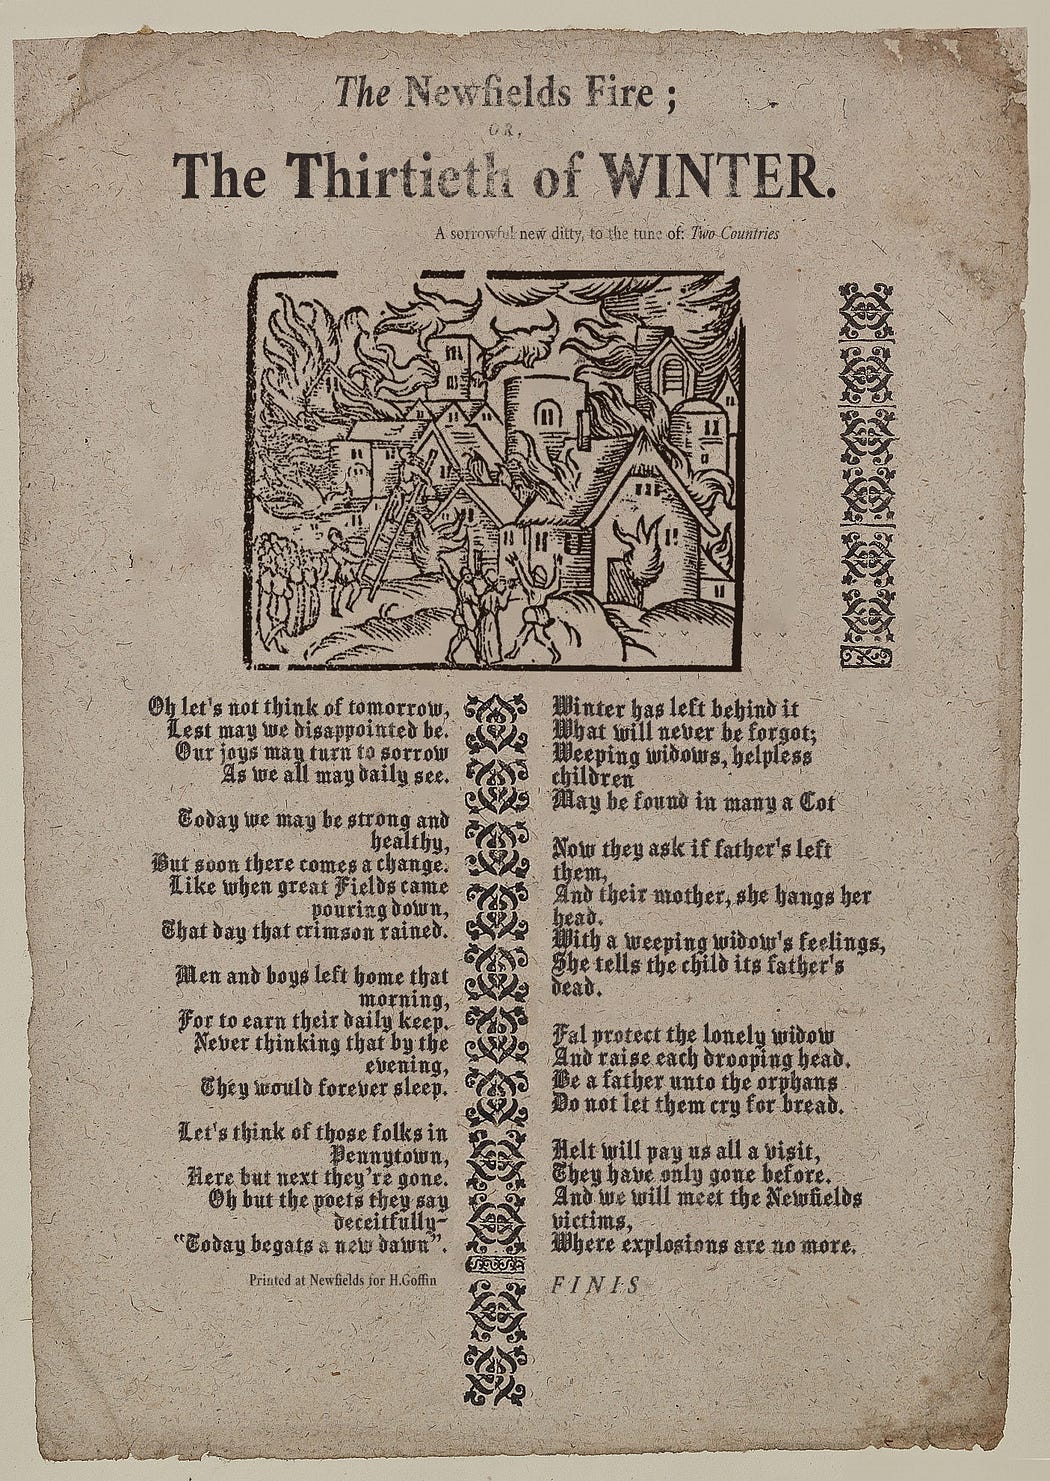 The Newfields Fire ;
OR,
The Thirtieth of WINTER.
A sorrowful new ditty, to the tune of: Two Countries
Oh let's not think of tomorrow,
Lest may we disappointed be.
Our joys may turn to sorrow
As we all may daily see.
Today we may be strong and
healthy,
But soon there comes a change.
Like when great Fields came
pouring down,
That day that crimson rained.
Men and boys left home that
morning,
For to earn their daily keep.
Never thinking that by the
evening,
They would forever sleep.
Let's think of those folks in
Pennytown,
Here but next they're gone.
Oh but the poets they say
deceitfully-
"Today begats a new dawn".
Printed at Newfields for H.Goffin
Winter has left behind it
What will never be forgot;
Weeping widows, helpless
children
May be found in many a Cot
Now they ask if father's left
them,
And their mother, she hangs her
head.
With a weeping widow's feelings,
She tells the child its father's
dead.
Fal protect the lonely widow
And raise each drooping head.
Be a father unto the orphans
Do not let them cry for bread.
Helt will pay us all a visit,
They have only gone before.
And we will meet the Newfields
victims,
Where explosions are no more.
FINIS